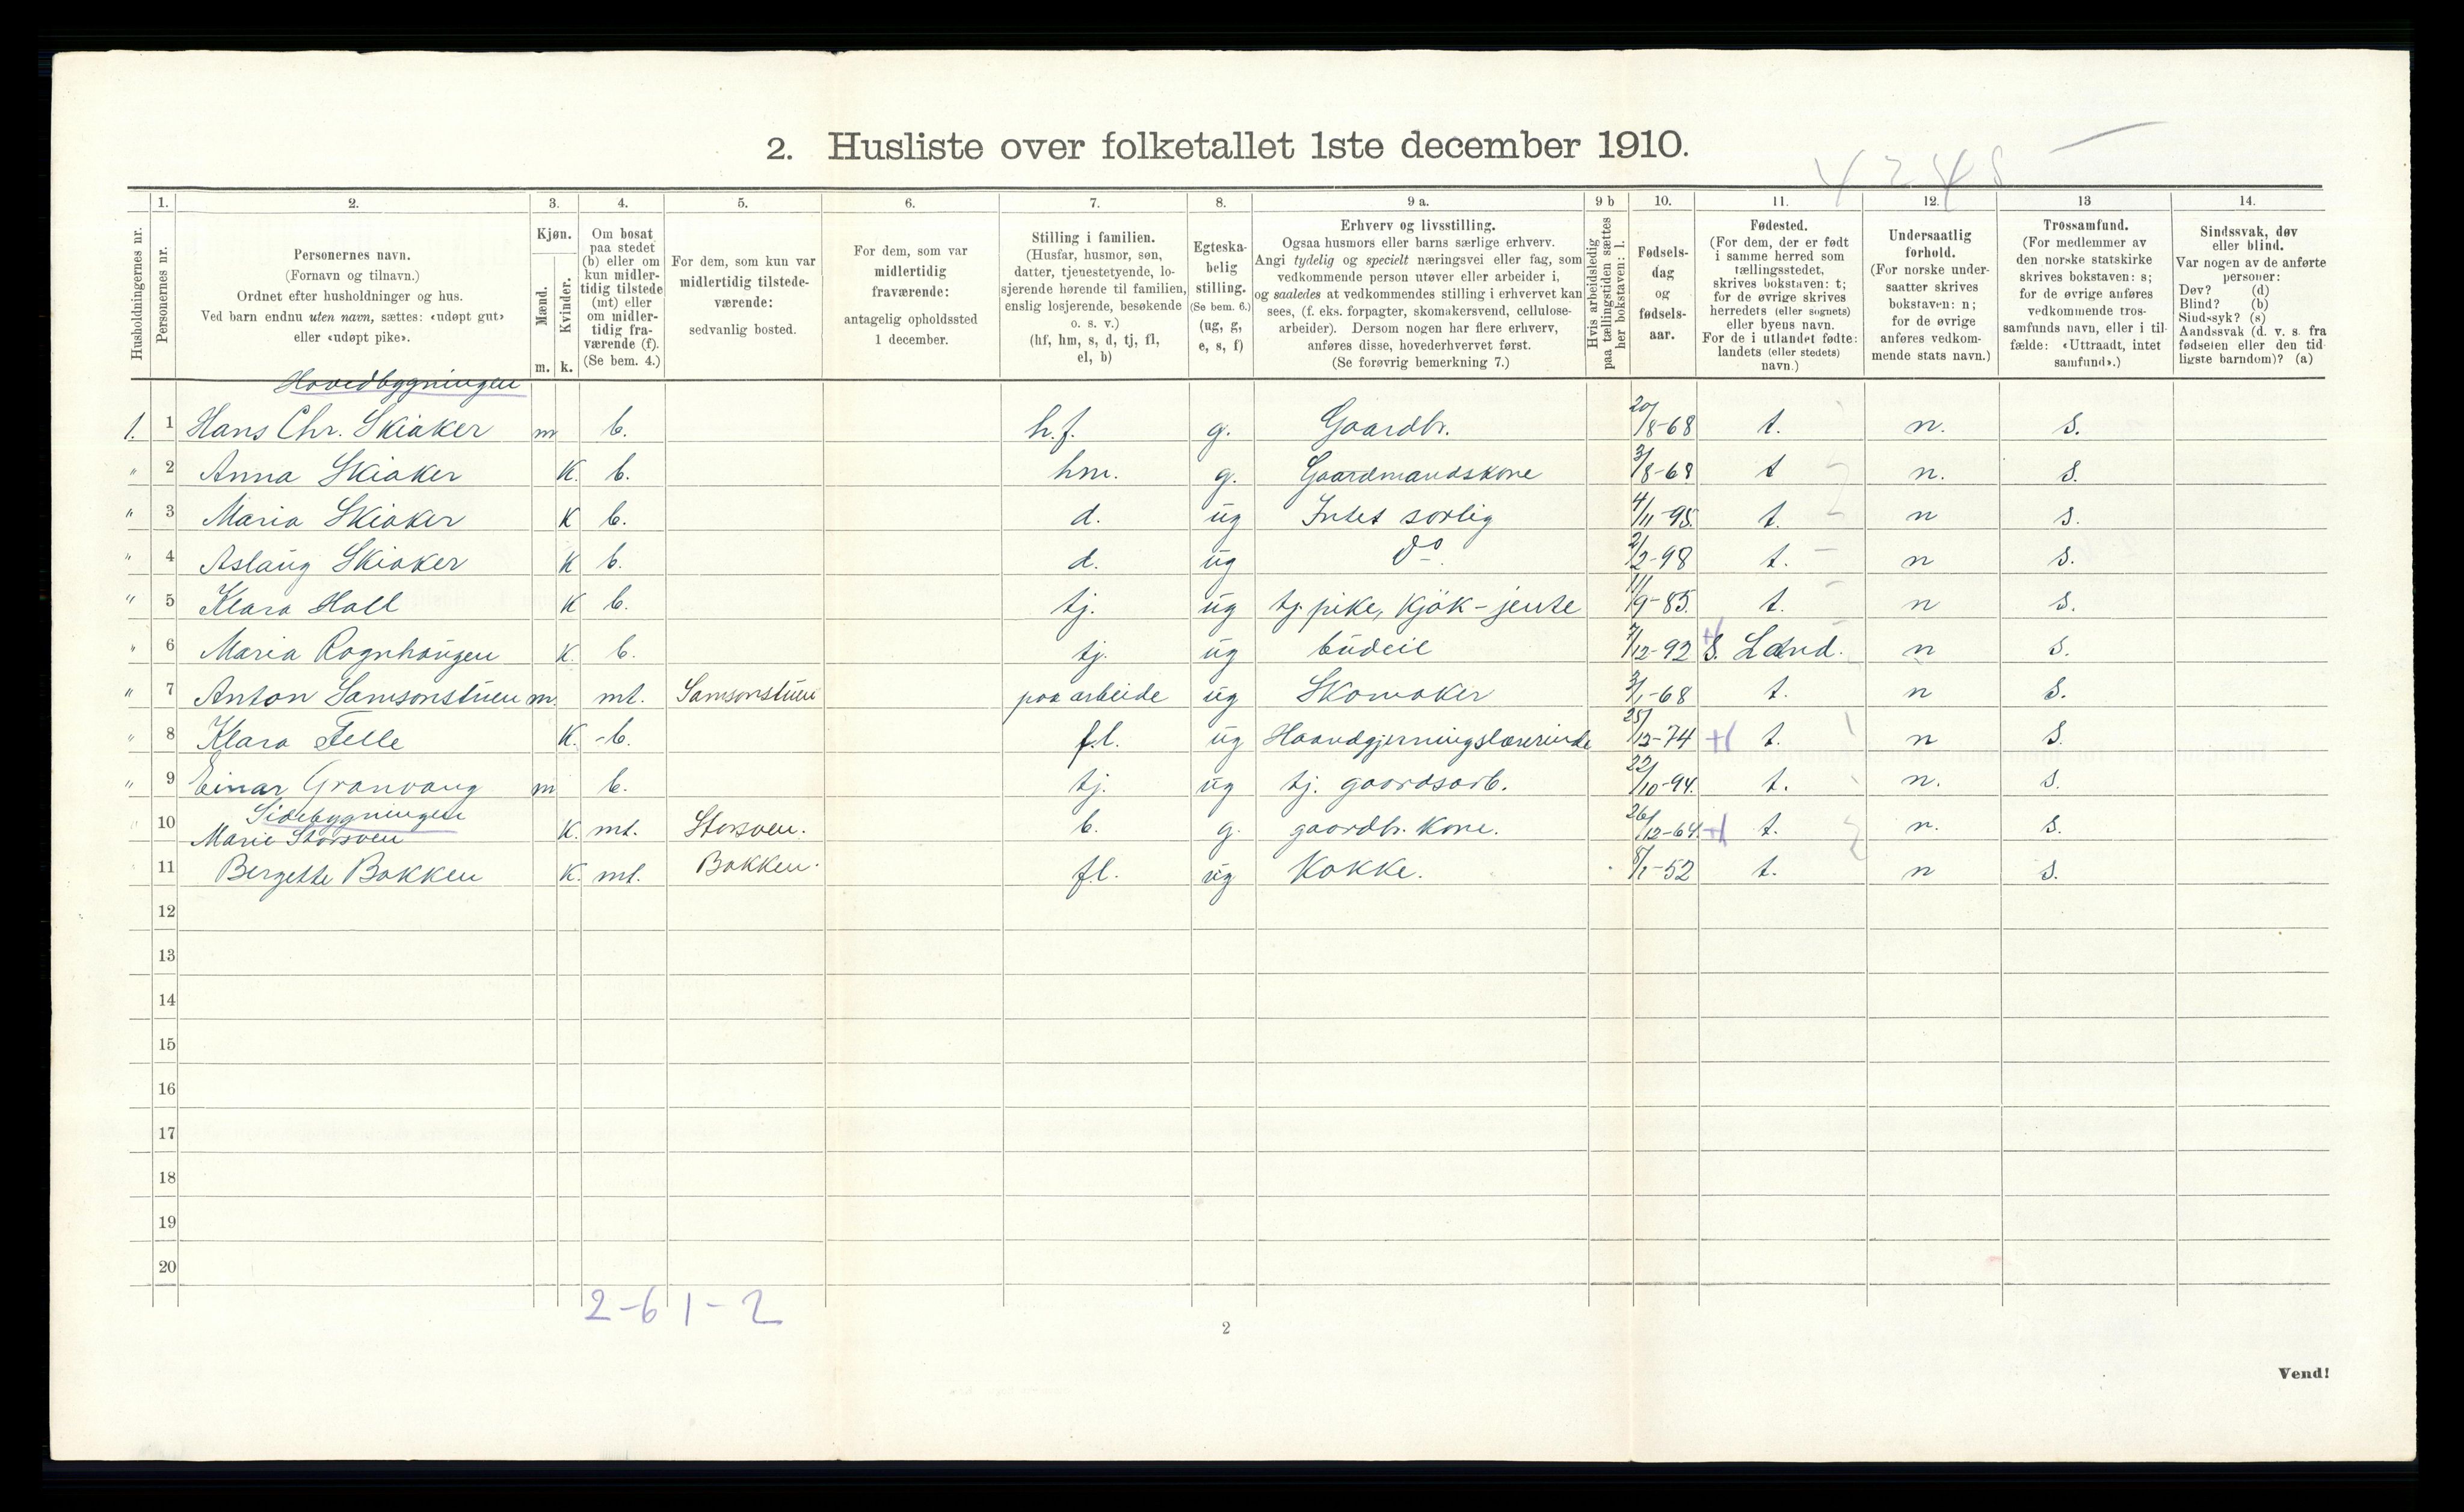 2. Husliste over folketallet 1ste december 1910.
Husholdningernes nr.
1.
Personernes nr.
2.
Personernes navn.
(Fornavn og tilnavn.)
Ordnet efter husholdninger og hus.
Ved barn endnu uten navn, sættes: «udøpt gut»
eller «udøpt pike».
3.
Kjøn.
Mænd.
Kvinder.
m. k.
4.
Om bosat
paa stedet
(b) eller om
kun midler-
tidig tilstede
(mt) eller
om midler-
tidig fra-
værende (f).
(Se bem. 4.)
5.
For dem, som kun var
midlertidig tilstede-
værende:
sedvanlig bosted.
6.
For dem, som var
midlertidig
fraværende:
antagelig opholdssted
1 december.
7.
Stilling i familien.
(Husfar, husmor, søn,
datter, tjenestetyende, lo-
sjerende hørende til familien,
enslig losjerende, besøkende
o. s. v.)
(hf, hm, s, d, tj, fl,
el, b)
8.
Egteska-
belig
stilling.
(Se bem. 6.)
(ug, g,
e, s, f)
9 a.
Erhverv og livsstilling.
Ogsaa husmors eller barns særlige erhverv.
Angi tydelig og specielt næringsvei eller fag, som
vedkommende person utøver eller arbeider i,
og saaledes at vedkommendes stilling i erhvervet kan
sees, (f. eks. forpagter, skomakersvend, cellulose-
arbeider). Dersom nogen har flere erhverv,
anføres disse, hovederhvervet først.
(Se forøvrig bemerkning 7.)
9 b
Hvis arbeidsledig
paa tællingstiden sættes
her bokstaven: l.
10.
Fødsels-
dag
og
fødsels-
aar.
11.
Fødested.
(For dem, der er født
i samme herred som
tællingsstedet,
skrives bokstaven: t;
for de øvrige skrives
herredets (eller sognets)
eller byens navn.
For de i utlandet fødte:
landets (eller stedets)
navn.)
12.
Undersaatlig
forhold.
(For norske under-
saatter skrives
bokstaven: n;
for de øvrige
anføres vedkom-
mende stats navn.)
13
Trossamfund.
(For medlemmer av
den norske statskirke
skrives bokstaven: s;
for de øvrige anføres
vedkommende tros-
samfunds navn, eller i til-
fælde: «Uttraadt, intet
samfund».)
14.
Sindssvak, døv
eller blind.
Var nogen av de anførte
personer:
Døv? (d)
Blind? (b)
Sindssyk? (s)
Aandssvak (d. v. s. fra
fødselen eller den tid-
ligste barndom)? (a)
Hovedbygningen
1. 1 Hans Chr. Skiaker m b. h.f. g. Gaardbr. 20/8-68 t. n. s.
" 2 Anna Skiaker K. b. hm. g. Gaardmandskone 3/8-68 t n. s.
" 3 Maria Skiaker K b. d. ug Intet særlig 4/11-95. t. n s.
" 4 Aslaug Skiaker K b. d. ug do. 2/2-98 t. n s.
" 5 Klara Hall K b. tj. ug tj. pike, Kjøk-jente 11/9-85. t. n s.
" 6 Maria Rognhaugen K. b. tj. ug budeie 7/12-92 S. Land. n s.
" 7 Anton Samsonstuen m. mt. Samsonstuen paa arbeide ug Skomaker 3/1-68 t. n s.
" 8 Klara Felle K. -b. f.l. ug Haandgjerningslærerinde 25/12-74 t. n s.
" 9 Einar Granvang m b. tj. ug tj. gaardsarb. 22/10-94. t. n. s.
Sidebygningen
10 Marie Storsveen K. mt. Storsveen. b. g. gaardbr. Kone. 26/12-64. t. n. s.
11 Bergette Bakken K. mt. Bakken. fl. ug Kokke. 8/1-52 t. n s.
12
13
14
15
16
17
18
19
20
2-6 1-2
2
Vend!